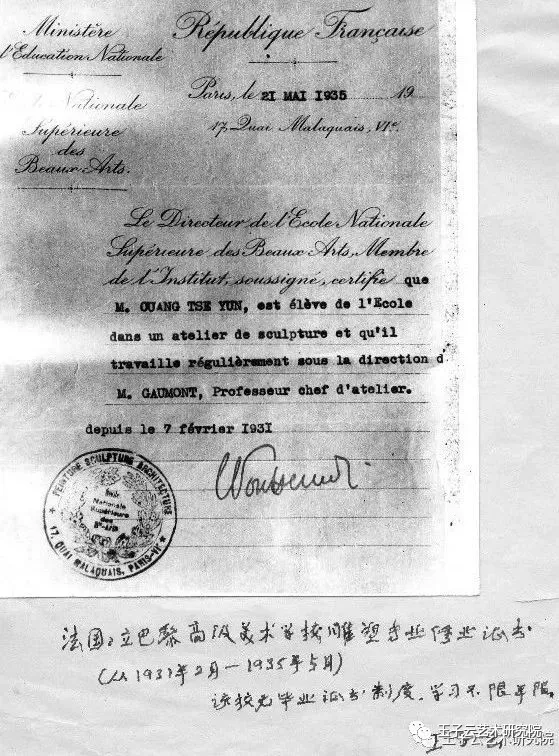 Ministère
l'Education Nationale
République Française
Paris, le 21 MAI 1935 19
17, Quai Malaquais, VIe
Nationale
Supérieure
des
Beaux-Arts.
Le Directeur de l'Ecole Nationale
Supérieure des Beaux Arts, Membre
de l'Institut, soussigné, certifie que
M. OUANG TSE YUN, est élève de l'Ecole
dans un atelier de sculpture et qu'il
travaille régulièrement sous la direction d
M. GAUMONT, Professeur chef d'atelier.
depuis le 7 février 1931
PEINTURE SCULPTURE ARCHITECTURE
Ecole
Nationale
Supérieure
des
Bx-Arts
17, QUAI MALAQUAIS, PARIS-VIe
法国国立巴黎高级美术学校雕塑专业修业证书
(从1931年2月—1935年5月)
该校无毕业证书制度,学习不限年限。
王子云
王子云艺术研究院